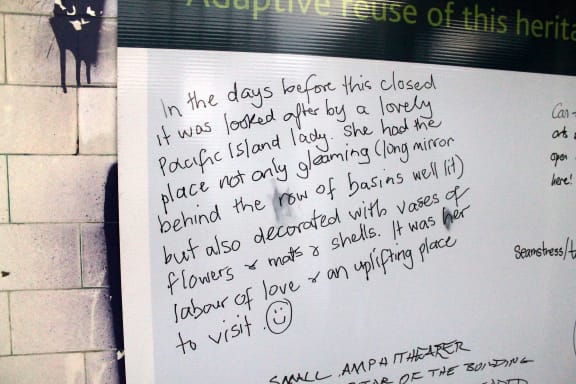 Adaptive reuse of this herita
In the days before this closed
it was looked after by a lovely
Pacific Island lady. She had the
place not only gleaming (long mirror
behind the row of basins well lit)
but also decorated with vases of
flowers & mats & shells. It was her
labour of love & an uplifting place
to visit. ☺
Can
open
here!
Seamstress/ta
SMALL AMPHITHEATER
OF THE BUILDING